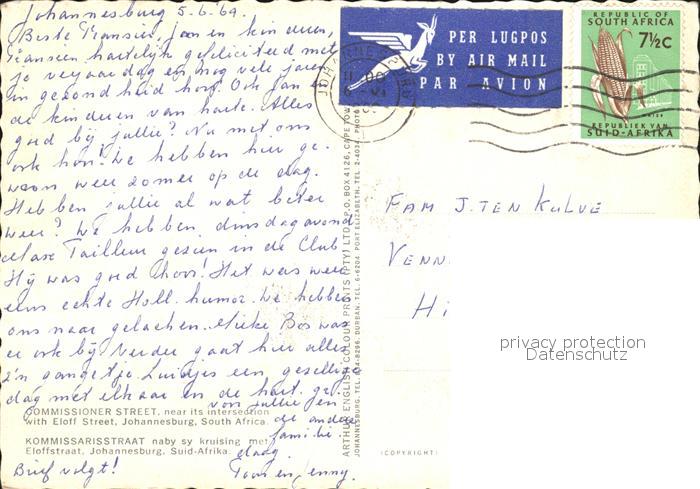 Johannesburg 5.6.69.
Beste Fransien, Jan en kinderen,
Fransien hartelijk gefeliciteerd met
je verjaardag en nog vele jaren
in gezondheid hoor. Ook Jan en
de kinderen van harte. Alles
goed bij jullie? Nu met ons
ook hoor! We hebben hier ge-
woon weer zomer op de dag.
Hebben jullie al wat beter
weer? We hebben dinsdagavond
Tailleur gezien in de Club
Hij was goed hoor! Het was weer
eens echte Holl. humor. We hebben
ons naar gelachen. Mieke Bos was
er ook bij. Verder gaat hier alles
z'n gangetje. Luidjes een gezellige
dag met elkaar en de hart. gr.
von jullie en
de andere
familie.
daag.
Brief volgt!
Toon en Jenny.
COMMISSIONER STREET, near its intersection
with Eloff Street, Johannesburg, South Africa.
KOMMISSARISSTRAAT naby sy kruising met
Eloffstraat, Johannesburg, Suid-Afrika.
ARTHUR ENGLISH COLOUR PRINTS (PTY) LTD., P.O. BOX 4126, CAPE TOWN
JOHANNESBURG, TEL. DURBAN, TEL. 6-6204. PORT ELIZABETH, TEL. 2-4034.
(COPYRIGHT)
PER LUGPOS
BY AIR MAIL
PAR AVION
REPUBLIC OF
SOUTH AFRICA
7½c
REPUBLIEK VAN
SUID-AFRIKA
FAM J. TEN KULVE
VENN
HI
privacy protection
Datenschutz